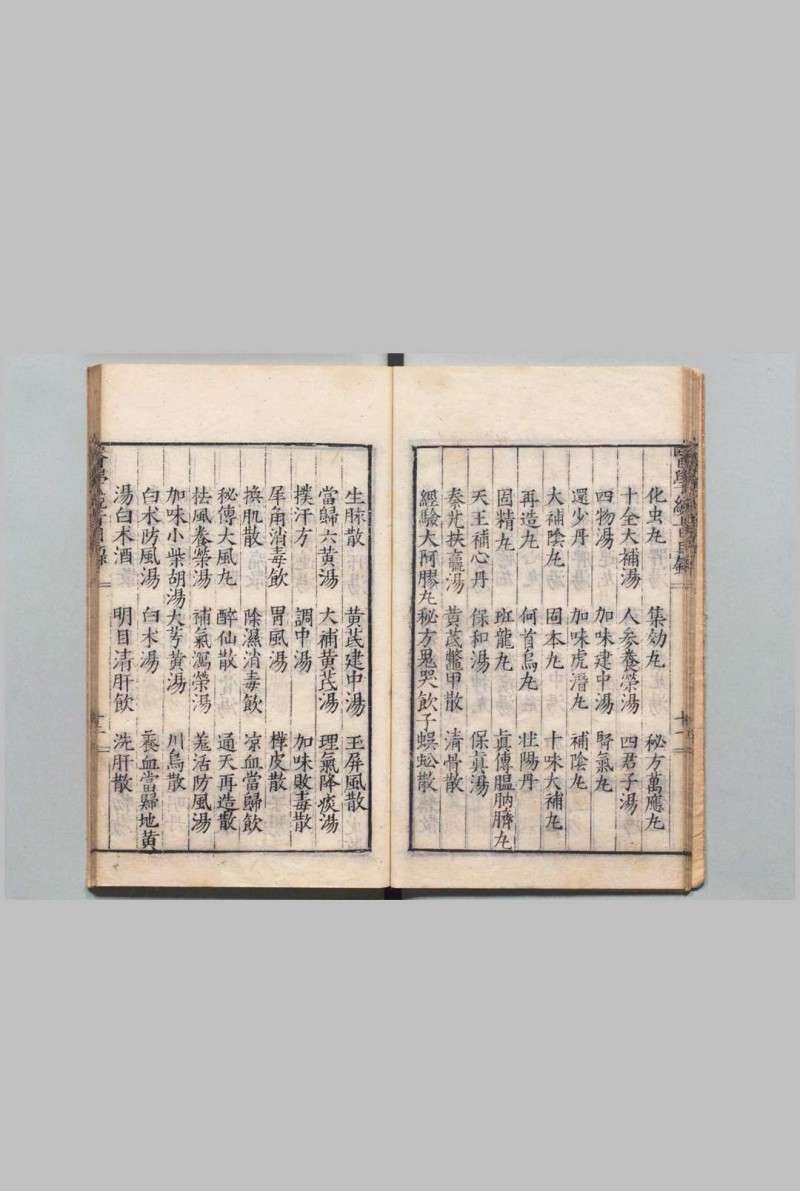 化虫丸 集効丸 秘方萬應丸
十全大補湯 人參養榮湯 四君子湯
四物湯 加味建中湯 腎氣丸
還少丹 加味虎潛丸 補陰丸
大補陰丸 固本丸 十味大補丸
再造丸 何首烏丸 壮陽丹
固精丸 班龍丸 眞傳膃肭臍丸
天王補心丹 保和湯 保眞湯
秦艽扶羸湯 黄芪鱉甲散 清骨散
經驗大阿膠丸 秘方鬼哭飲子 蜈蚣散
十一
生脉散 黄芪建中湯 玉屏風散
當歸六黄湯 大補黄芪湯 理氣降痰湯
撲汗方 調中湯 加味敗毒散
犀角消毒飲 胃風湯 樺皮散
換肌散 除濕消毒飲 凉血當歸飲
秘傳大風丸 醉仙散 通天再造散
祛風養榮湯 補氣瀉榮湯 羗活防風湯
加味小柴胡湯 大芎黄湯 川烏散
白朮防風湯 白朮湯 養血當歸地黄
湯白朮酒 明目清肝飲 洗肝散